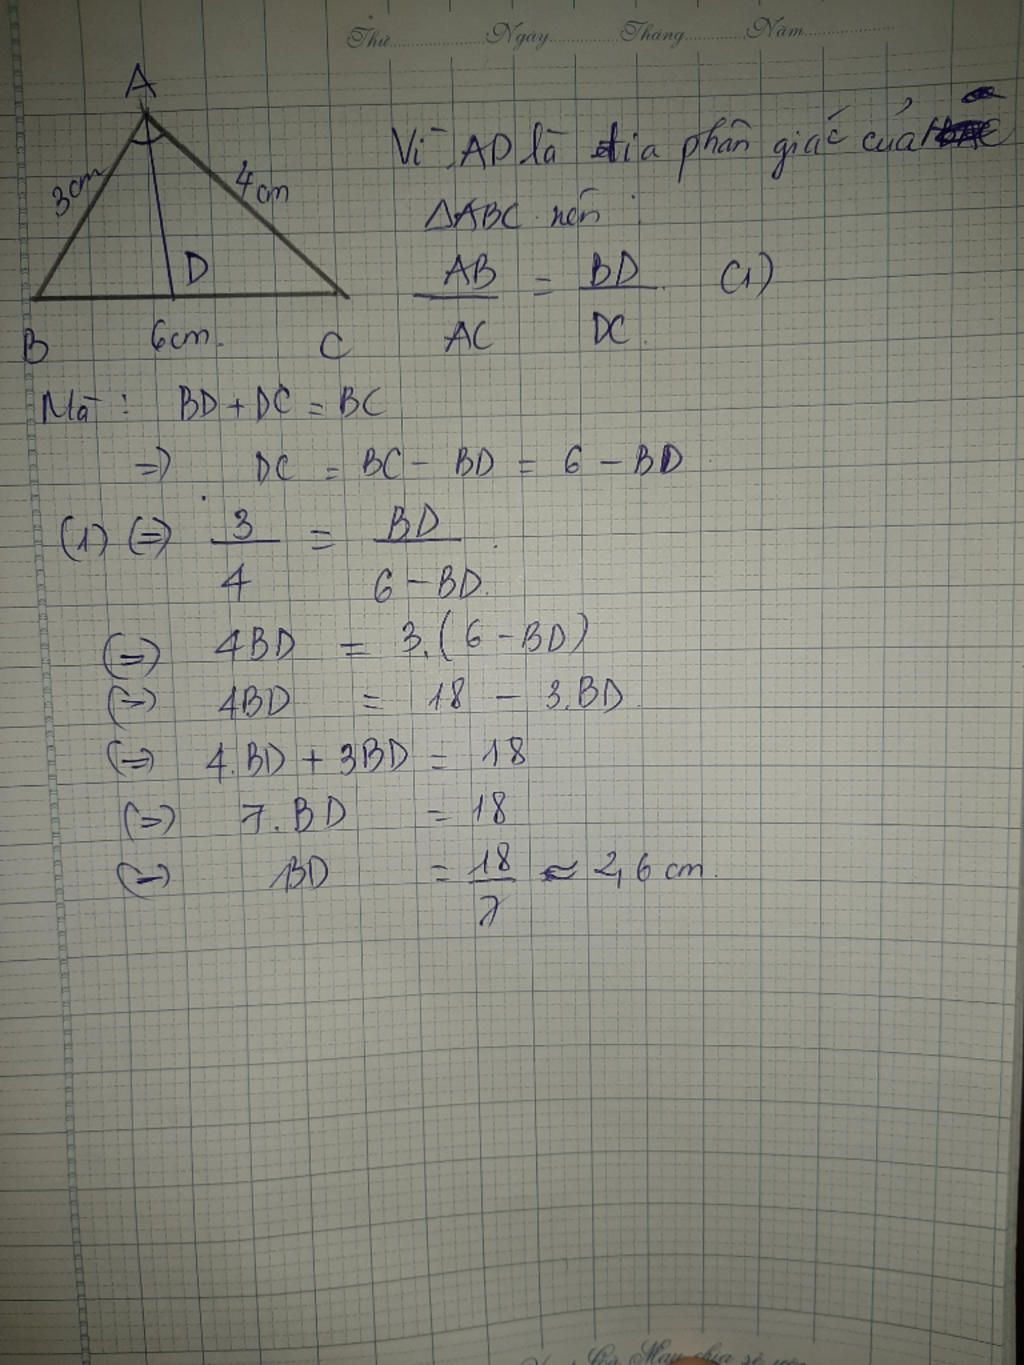 Thứ Ngày Tháng Năm
A
3cm 4cm
D
B 6cm. C
Vì AD là tia phân giác của
△ABC nên :
AB/AC = BD/DC. (1)
Mà : BD + DC = BC
=> DC = BC - BD = 6 - BD
(1) (=) 3/4 = BD/6 - BD.
(=) 4BD = 3.(6 - BD)
(=) 4BD = 18 - 3.BD
(=) 4.BD + 3BD = 18
(=) 7.BD = 18
(=) BD = 18/7 ≈ 2,6 cm.